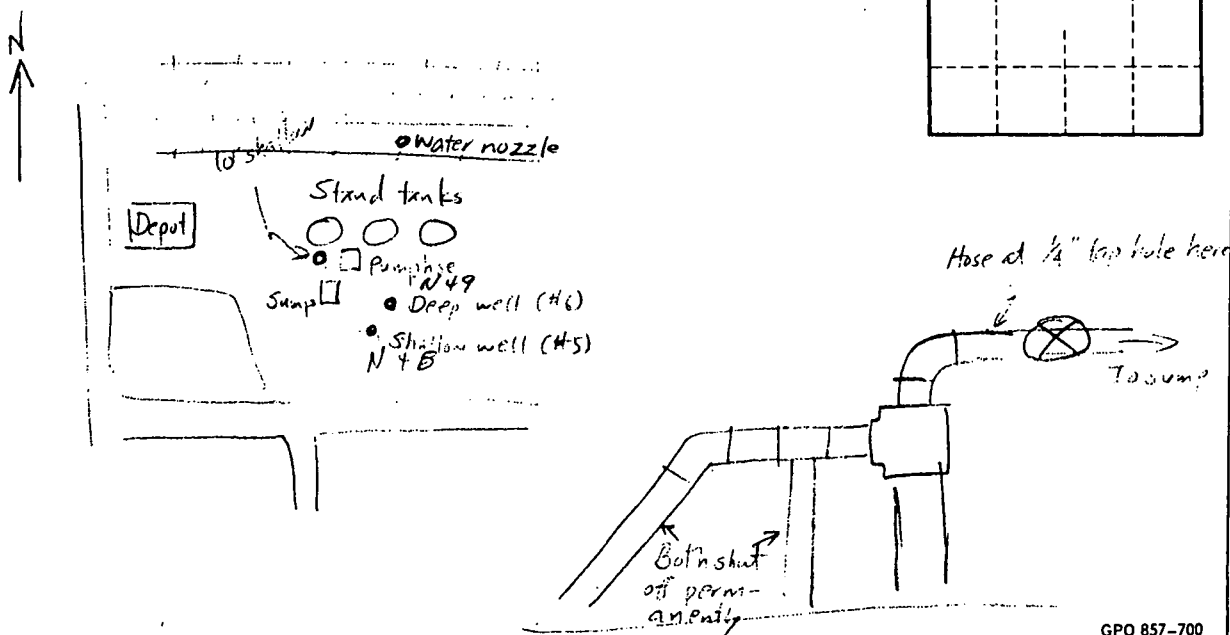 N
Water nozzle
10' shallow
Stand tanks
Depot
Pumphse
N 49
Sump
Deep well (#6)
Shallow well (#5)
N 4 B
Hose at 1/4" tap hole here
To sump
Both shut
off perm-
anently
GPO 857-700